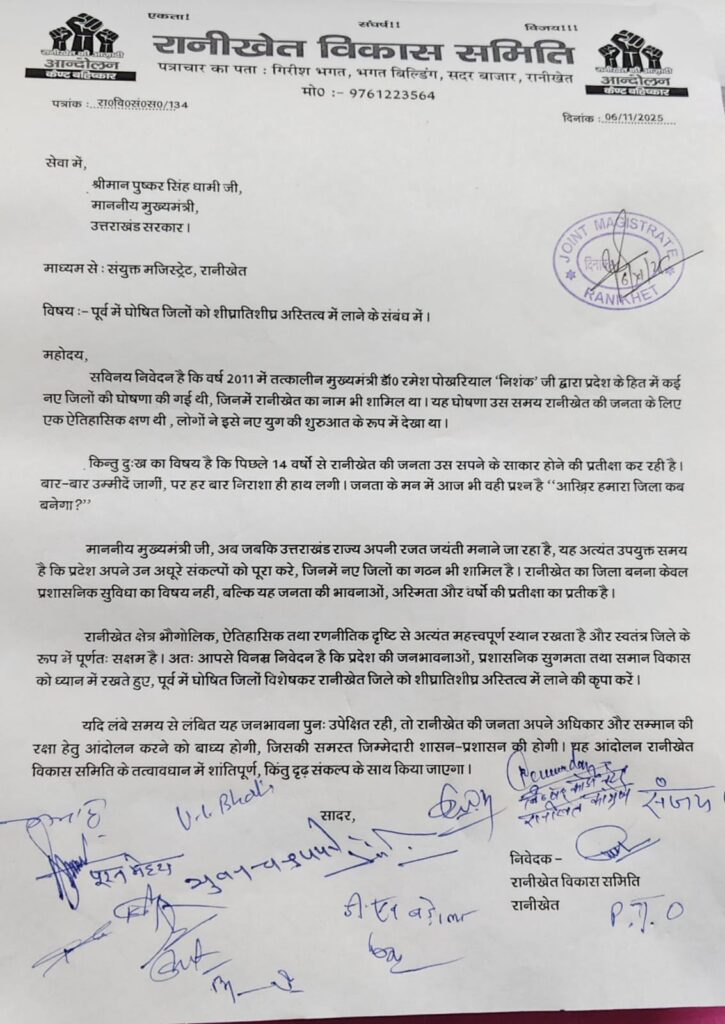 एकता! संघर्ष!! विजय!!!
रानीखेत विकास समिति
पत्राचार का पता : गिरीश भगत, भगत बिल्डिंग, सदर बाजार, रानीखेत
मो0 :- 9761223564
रानीखेत की आज़ादी
आन्दोलन
कैण्ट बहिष्कार
रानीखेत की आज़ादी
आन्दोलन
कैण्ट बहिष्कार
पत्रांक : रा0वि0सं0स0/134
दिनांक : 06/11/2025
सेवा में,
श्रीमान पुष्कर सिंह धामी जी,
माननीय मुख्यमंत्री,
उत्तराखंड सरकार।
JOINT MAGISTRATE
दिनांक
RANIKHET
माध्यम से : संयुक्त मजिस्ट्रेट, रानीखेत
विषय :- पूर्व में घोषित जिलों को शीघ्रातिशीघ्र अस्तित्व में लाने के संबंध में।
महोदय,
सविनय निवेदन है कि वर्ष 2011 में तत्कालीन मुख्यमंत्री डॉ0 रमेश पोखरियाल ‘निशंक’ जी द्वारा प्रदेश के हित में कई
नए जिलों की घोषणा की गई थी, जिनमें रानीखेत का नाम भी शामिल था। यह घोषणा उस समय रानीखेत की जनता के लिए
एक ऐतिहासिक क्षण थी , लोगों ने इसे नए युग की शुरुआत के रूप में देखा था।
किन्तु दुःख का विषय है कि पिछले 14 वर्षो से रानीखेत की जनता उस सपने के साकार होने की प्रतीक्षा कर रही है।
बार-बार उम्मीदें जागीं, पर हर बार निराशा ही हाथ लगी। जनता के मन में आज भी वही प्रश्न है ‘‘आख़िर हमारा जिला कब
बनेगा?’’
माननीय मुख्यमंत्री जी, अब जबकि उत्तराखंड राज्य अपनी रजत जयंती मनाने जा रहा है, यह अत्यंत उपयुक्त समय
है कि प्रदेश अपने उन अधूरे संकल्पों को पूरा करे, जिनमें नए जिलों का गठन भी शामिल है। रानीखेत का जिला बनना केवल
प्रशासनिक सुविधा का विषय नही, बल्कि यह जनता की भावनाओं, अस्मिता और वर्षो की प्रतीक्षा का प्रतीक है।
रानीखेत क्षेत्र भौगोलिक, ऐतिहासिक तथा रणनीतिक दृष्टि से अत्यंत महत्त्वपूर्ण स्थान रखता है और स्वतंत्र जिले के
रूप में पूर्णतः सक्षम है। अतः आपसे विनम्र निवेदन है कि प्रदेश की जनभावनाओं, प्रशासनिक सुगमता तथा समान विकास
को ध्यान में रखते हुए, पूर्व में घोषित जिलों विशेषकर रानीखेत जिले को शीघ्रातिशीघ्र अस्तित्व में लाने की कृपा करें।
यदि लंबे समय से लंबित यह जनभावना पुनः उपेक्षित रही, तो रानीखेत की जनता अपने अधिकार और सम्मान की
रक्षा हेतु आंदोलन करने को बाध्य होगी, जिसकी समस्त जिम्मेदारी शासन-प्रशासन की होगी। यह आंदोलन रानीखेत
विकास समिति के तत्वावधान में शांतिपूर्ण, किंतु दृढ़ संकल्प के साथ किया जाएगा।
सादर,
संजय
निवेदक -
रानीखेत विकास समिति
रानीखेत
P.T.O